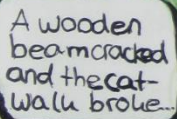 A wooden
beam cracked
and the cat-
walk broke...